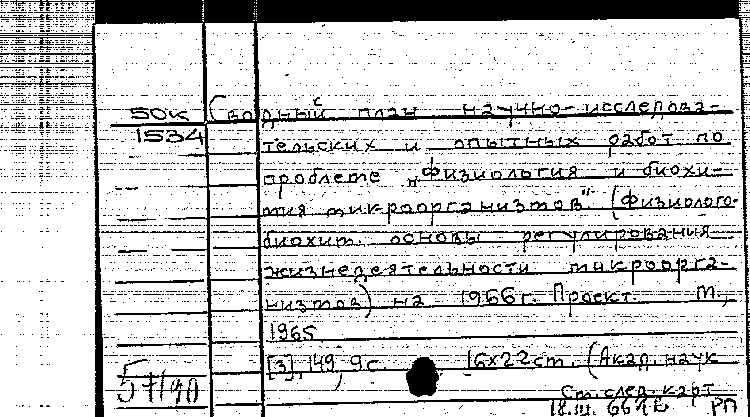 50к Сводный план научно-исследова-
1534
тельских и опытных работ по
проблеме „Физиология и биохи-
мия микроорганизмов". (Физиолого-
биохим. основы регулирования
жизнедеятельности микроорга-
низмов) на 1966 г. Проект. М.,
1965
[3], 149, 9 с. 16x22 см. (Акад. наук
57/90
См. след. карт.
18.III.66 РП